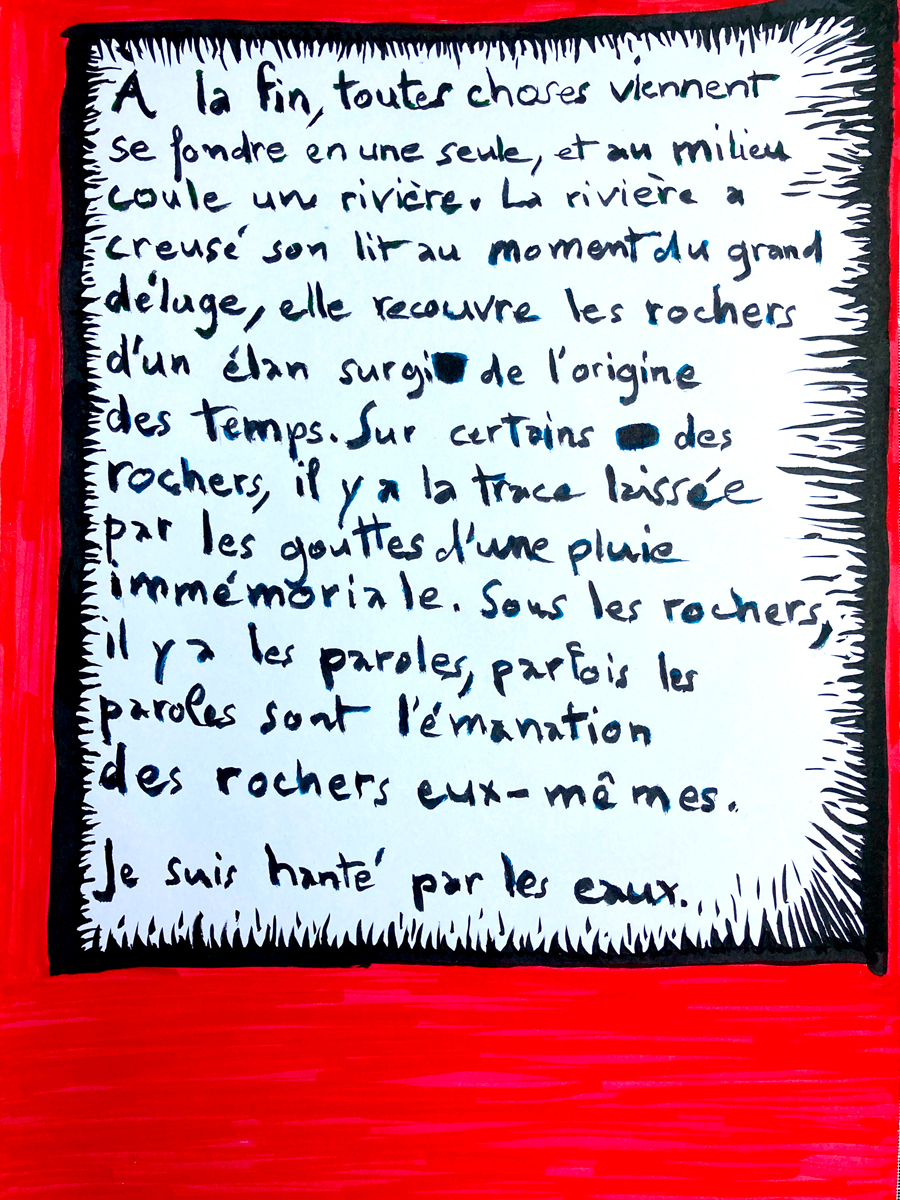 A la fin, toutes choses viennent
se fondre en une seule, et au milieu
coule une rivière. La rivière a
creusé son lit au moment du grand
déluge, elle recouvre les rochers
d'un élan surgi de l'origine
des temps. Sur certains des
rochers, il y a la trace laissée
par les gouttes d'une pluie
immémoriale. Sous les rochers,
il y a les paroles, parfois les
paroles sont l'émanation
des rochers eux-mêmes.
Je suis hanté par les eaux.